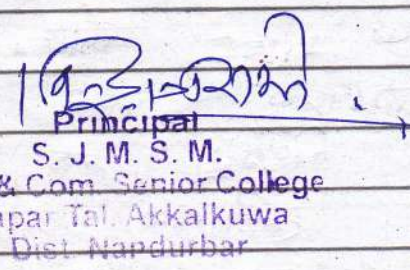 Principal
S. J. M. S. M.
& Com. Senior College
apar Tal. Akkalkuwa
Dist. Nandurbar